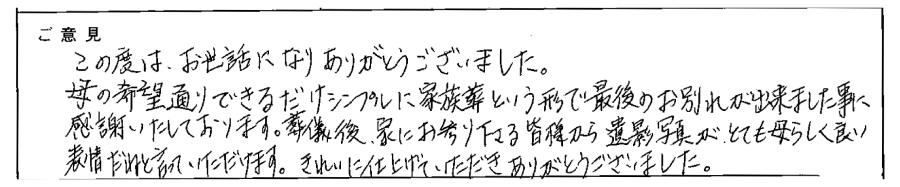 ご意見
この度は、お世話になりありがとうございました。
母の希望通りできるだけシンプルに家族葬という形で最後のお別れが出来ました事に
感謝いたしております。葬儀後、家にお参り下さる皆様から遺影写真が、とても母らしく良い
表情だねと言っていただけます。きれいに仕上げていただきありがとうございました。